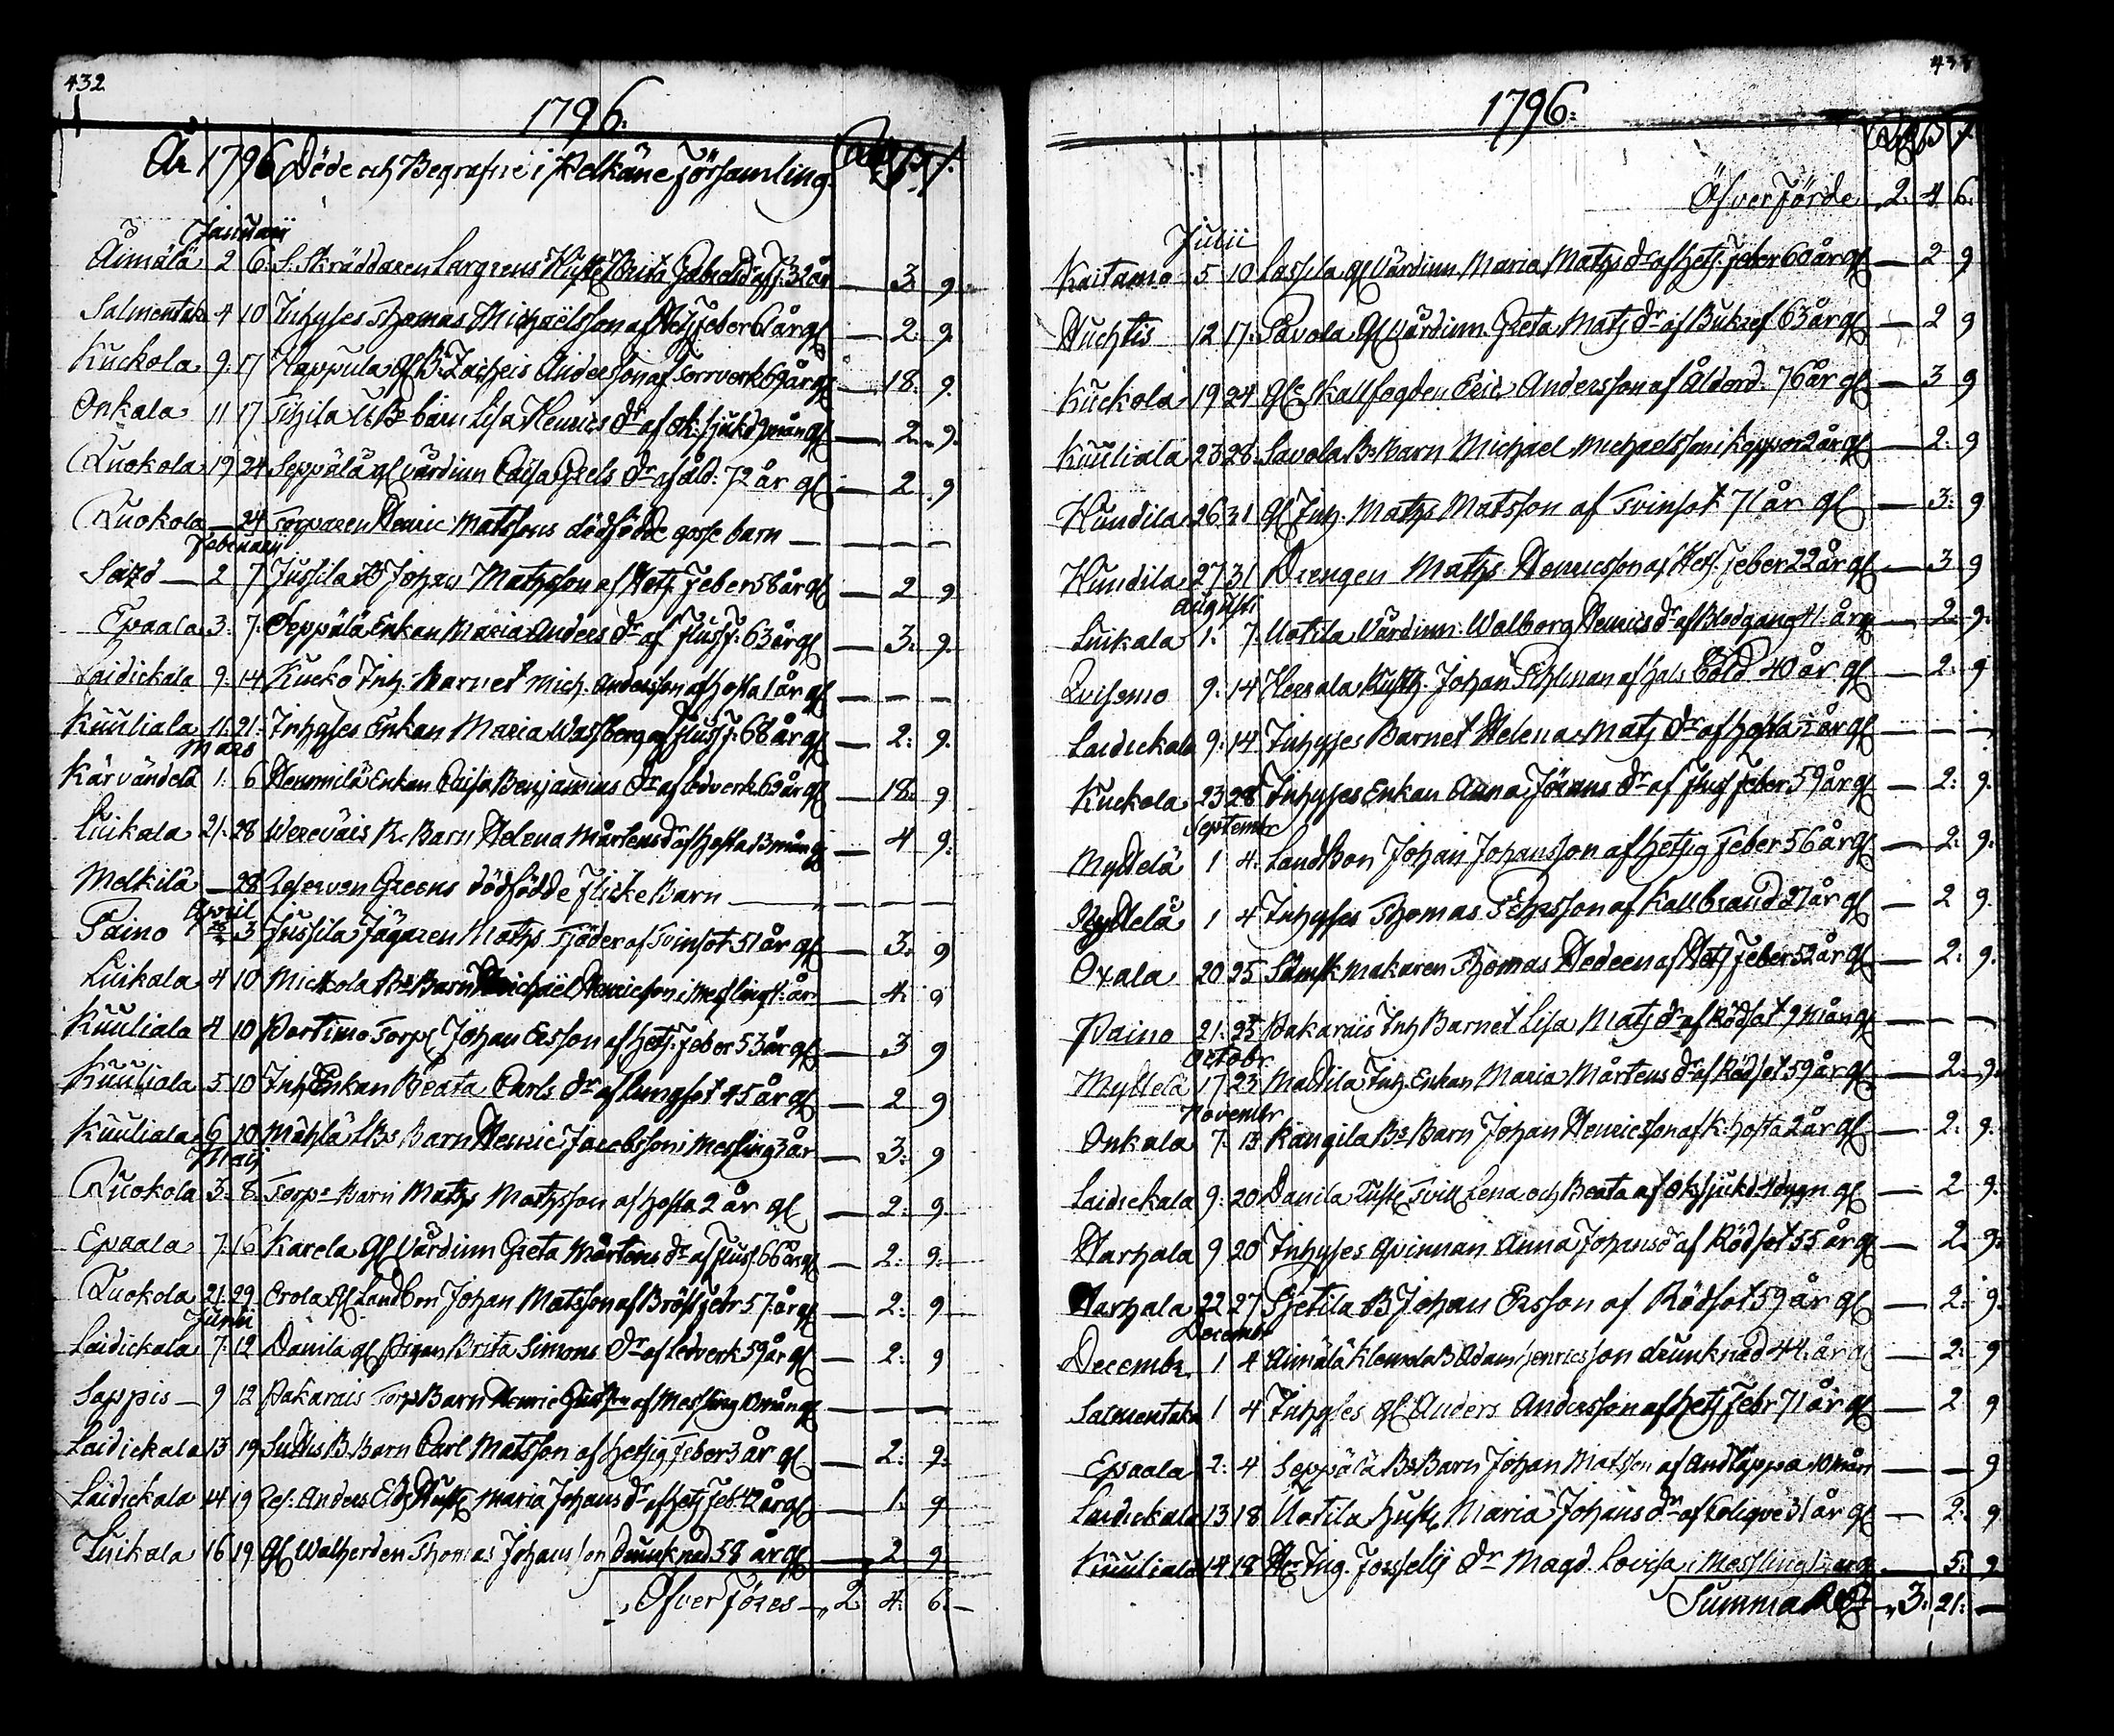 432
1796.
År 1796 Döde och Begrafne i Pelkäne Församling.
Januarii
Äimälä 2 6 S. Skräddaren Largrens Hust. Brita 32 år — 3 9
Salmentaka 4 10 Inhyses Thomas Michaëlsson af Hetz feber 61 år gl — 2: 9.
Kuckola 9. 17 Happula Zachris Andersson af Torrverk 69 år gl — 18. 9
Onkala 11 17 barn Lisa Henrics dr af ok: sjukd 9 mån gl — 2. 9.
Ruokola 19 24 Seppälä gl Värdinn Caisa dr af åld: 72 år gl — 2 9
Ruokola — 24 Torparen Henric Matssons dödfödde gosse barn — — — —
Februarii
2 7 Jussila Johan Mathsson af Hetz feber 58 år gl — 2 9
Epaala 3. 7. Seppälä Enkan Maria Anders dr af flussf. 63 år gl — 3. 9.
Laidickala 9. 14 Kucko Inh. Barnet Mich. Andersson af hosta 1 år gl — — —
Kuuliala 11. 21. Inhyses Enkan Maria Wassberg af flussf. 68 år gl — 2: 9.
Mars
Kärvändelä 1. 6 Hemmilä Enkan Caisa Benjamins dr af ledverk 62 år gl — 18. 9
Luikala 21. 28 Werevais R. Barn Helena Mårtensdr af hosta 13 mån gl — 4 9.
Melkilä — 28 Reserven Greens dödfödde flicke Barn — — — —
April
Paino 3 Jussila Jägaren Maths Fjäder af Tvinsot 51 år gl — 3. 9
Luikala 4 10 Mickola Bs Barn Michaël Henricson i Messling 4 år — 4. 9
Kuuliala 4 10 Portimo Torp. Johan Ersson af hetz. feber 53 år gl — 3 9
Kuuliala 5 10 Inh Enkan Beata Carls dr af lungsot 45 år gl — 2 9
Kuuliala 6 10 Mähkä Bs Barn Henric Jacobsson i Messling 3 år — 3. 9
Maij
Ruokola 3. 8. Torps Barn Maths Mathsson af hosta 2 år gl — 2. 9.
Epaala 7. 16 Karela gl Värdinn Greta Mårtens dr af flussf. 66 år gl — 2: 9.
Ruokola 21. 29. Erola gl Landbon Johan Matsson af Bröstfebr 57. år gl — 2: 9
Junii
Laidickala 7. 12 Danila gl Pigan Brita Simons dr af Ledverk 59 år gl — 2: 9
Sappis — 9 12 Pakarais Torps Barn Henric af Messling 10 mån gl — — —
Laidickala 13 19 Suttis B. Barn Carl Matsson af hetsig feber 3 år gl — 2: 9.
Laidickala 14 19 Res: Anders Hust Maria Johans dr af hetz feb. 42 år gl — 1. 9
Luikala 16 19 gl Walherden Thomas Johansson drunknad 58 år gl — 2 9
Öfverföres — 2. 4. 6. —
1796.
Öfver förde 2. 4 6.
Julii
Kaitamo 5 10 Lassila gl Värdinn Maria Maths dr af hetz. feber 60 år gl — 2 9
Auchtis 12 17. Savola gl Värdinn Greta Mats dr af Bukref 63 år gl — 2 9
Kuckola 19 24 gl Skallfogden Eric Andersson af Ålderd. 76 år gl — 3 9
Kuuliala 23 28 Savola Bs Barn Michael Michaelsson i Koppor 2 år gl — 2: 9
Hundila 26 31 gl Inh. Maths Matsson af Tvinsot 71 år gl — 3: 9
Hundila 27 31 Drengen Maths Henricsson af Hetz. feber 22 år gl — 3 9
Augusti
Luikala 1. 7. Uotila Värdinn: Walborg Henrics dr af Blodgang 41. år gl — 2: 9.
9. 14 Heerala Johan af håll 40 år gl — 2: 9
Laidickala 9. 14 Inhyses Barnet Helena Mats dr af hosta 2 år gl — — —
Kuckola 23 28 Inhyses Enkan Anna Jörans dr af fluss feber 59 år gl — 2: 9.
Septembr
Myttelä 1 4. Landbon Johan Johansson af hetsig feber 56 år gl — 2: 9.
Myttelä 1 4 Inhyses Thomas af Kallbrand 27 år gl — 2 9.
Oxala 20 25 Thomas Hedeen af Hetz feber 52 år gl — 2: 9.
Paino 21. 25 Pakarais Inh Barnet Lisa Mats dr af Rödsot 9 mån gl — — —
Octobr.
Myttelä 17 23 Mattila Inh. Enkan Maria Mårtens dr af Rödsot 59 år gl — 2: 9.
Novembr
Onkala 7. 13 Kangila Bs Barn Johan Henricsson af K. hosta 2 år gl — 2: 9.
Laidickala 9. 20 Danila Tvill Lena och Beata af ok sjukd. 4 dygn gl — 2 9.
Harhala 9 20 Inhyses Qvinnan Anna Johansdr af Rödsot 55 år gl — 2. 9.
Harhala 22 27 B Johan Ersson af Rödsot 59 år gl — 2: 9.
Decembr
Decembr. 1 4 Äimälä Klemola B Adam Henricsson drunknad 44. år gl — 2: 9
Salmentaka 1 4 Inhyses gl Anders Andersson af hetz febr 71 år gl — 2 9
Epaala 2: 4 Seppälä Bs Barn Johan Matsson af Andtäppa 10 mån — — 9
Laidickala 13 18 Uotila hust. Maria Johans dr af Colique 31 år gl — 2. 9
Kuuliala 14 18 Hr Ing. Forselij dr Magd. Lovisa i Messling år gl — 5. 9
Summa 3: 21: —